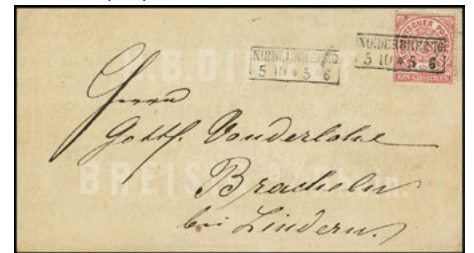 NIEDERBREISIG.
5 10 * 5-6
NIEDERBREISIG.
5 10 * 5-6
EIN GROSCHEN
Herrn
Gottf. Vonderlohe
Bracheln
bei Lindern.
BREIS